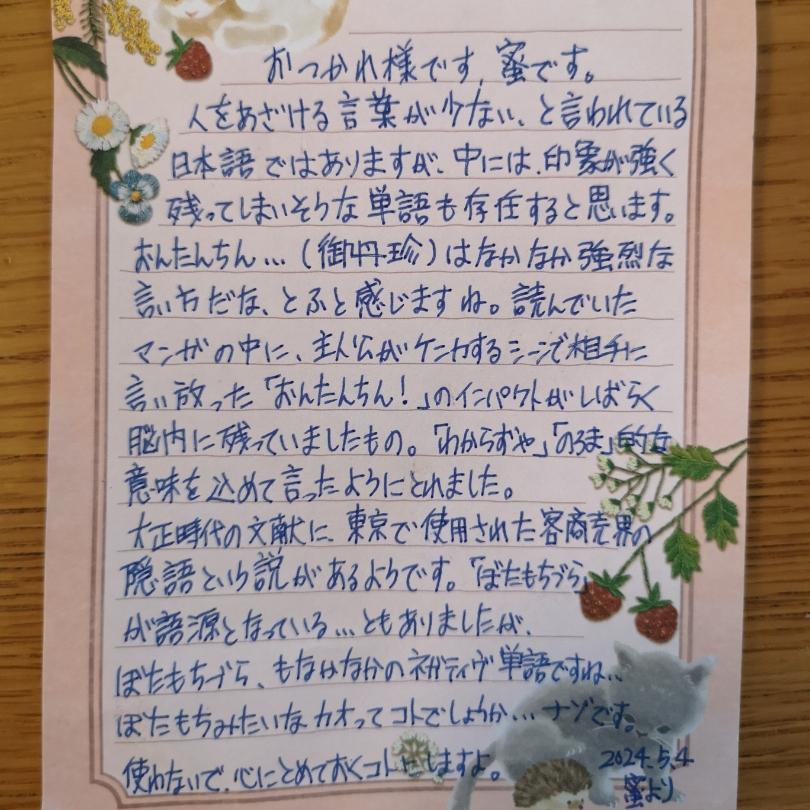 おつかれ様です、蜜です。
人をあざける言葉が少ない、と言われている
日本語ではありますが、中には、印象が強く
残ってしまいそうな単語も存在すると思います。
おんたんちん…(御丹珍)はなかなか強烈な
言い方だな、とふと感じますね。読んでいた
マンガの中に、主人公がケンカするシーンで相手に
言い放った「おんたんちん!」のインパクトがしばらく
脳内に残っていましたもの。「わからずや」「のろま」的な
意味を込めて言ったようにとれました。
大正時代の文献に、東京で使用された客商売界の
隠語という説があるようです。「ぼたもちづら」
が語源となっている…ともありましたが、
ぼたもちづら、もなかなかのネガティヴ単語ですね…
ぼたもちみたいなカオってコトでしょうか…ナゾです。
使わないで、心にとめておくコトにしますよ。
2024.5.4
蜜より